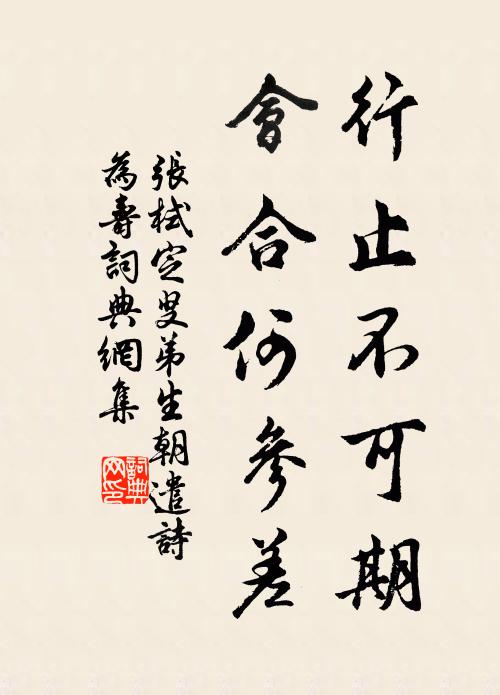 行止不可期
會合何參差
張栻定叟弟生朝遣詩
為壽詞典網集
詞典
网印